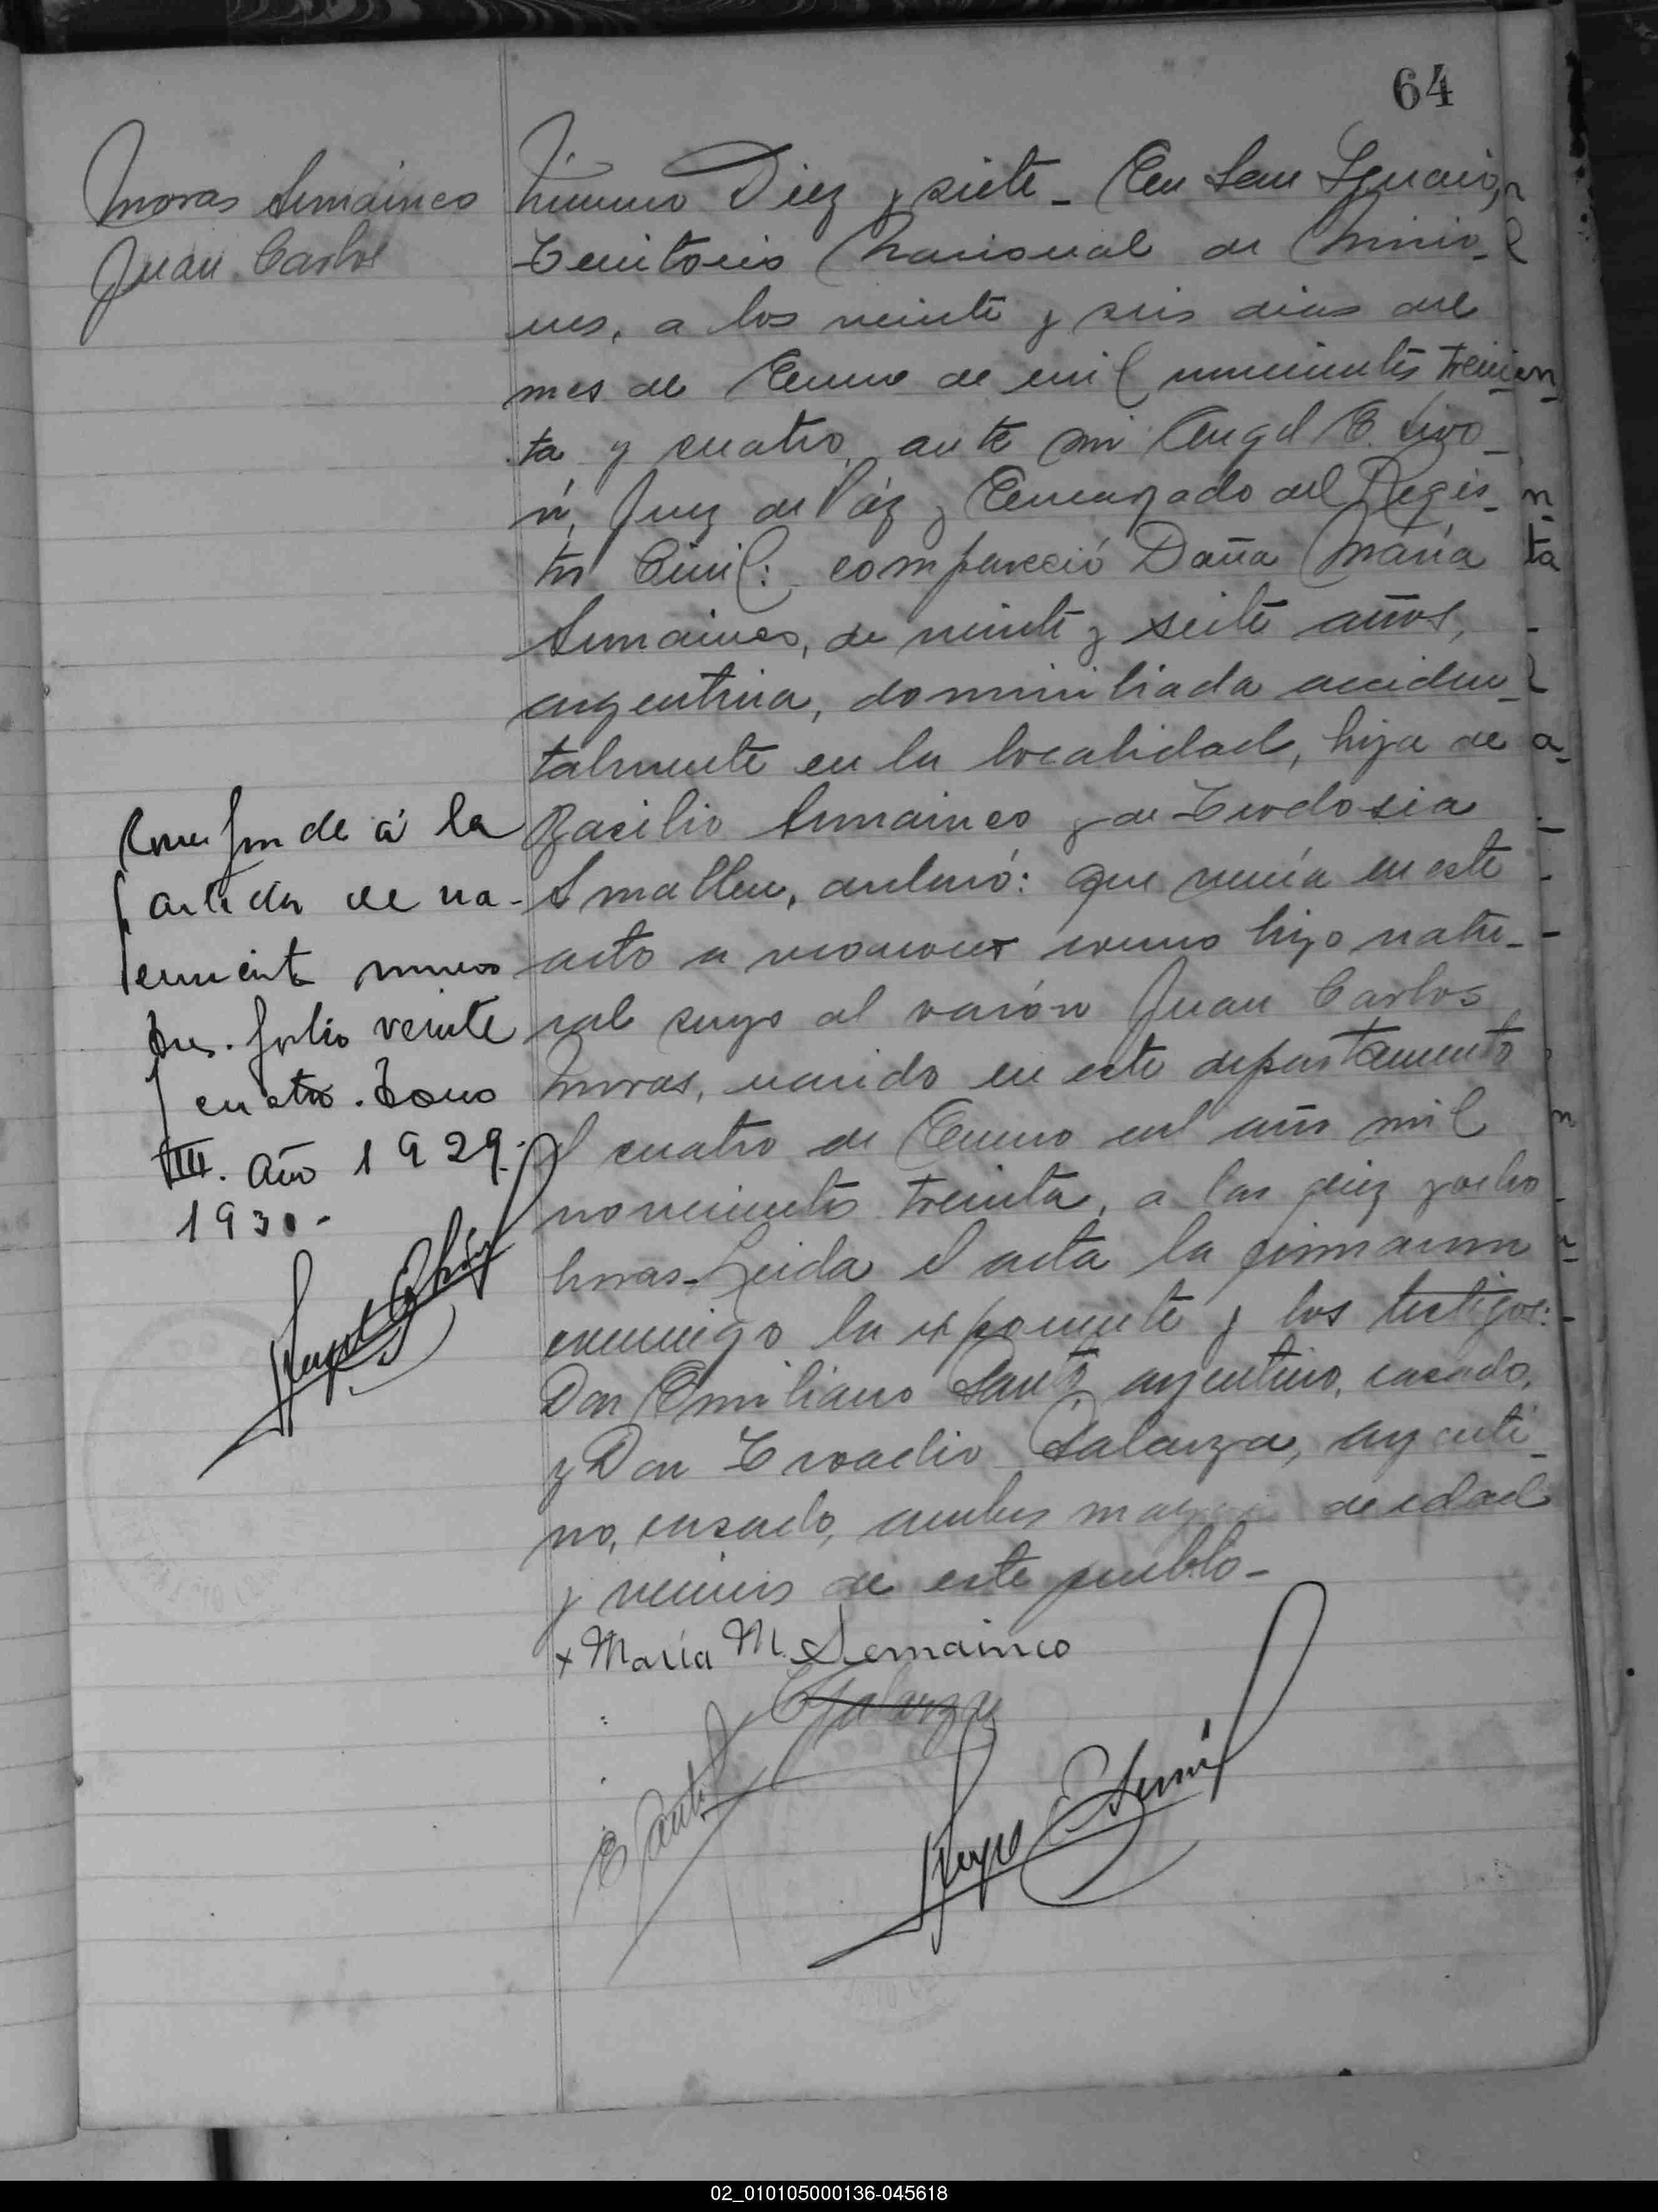 64
Moras Semainco
Juan Carlos
Número Diez y siete - En San Ignacio,
Territorio Nacional de Misio-
nes, a los veinte y seis dias del
mes de Enero de mil novecientos trein-
ta y cuatro, ante mi Angel E.
Juez de Páz y Encargado del Regis-
tro Civil: compareció Doña María
Semainco, de veinte y siete años,
argentina, domiciliada acciden-
talmente en la localidad, hija de
Basilio Semainco y de Teodosia
declaró: que venía en este
acto a reconocer como hijo natu-
ral suyo al varón Juan Carlos
Moras, nacido en este departamento
el cuatro de Enero del año mil
novecientos treinta, a las diez y ocho
horas - Leida el acta la firmaron
conmigo la exponente y los testigos:
Don Emiliano argentino, casado,
y Don Galarza, argenti-
no, casado, ambos de edad
y vecinos de este pueblo -
x María M. Semainco
Galarza
Corresponde á la
partida de na-
cimiento numero
tres. folio veinte
y cuatro. Tomo
III. Año 1929-
1930-
02_010105000136-045618